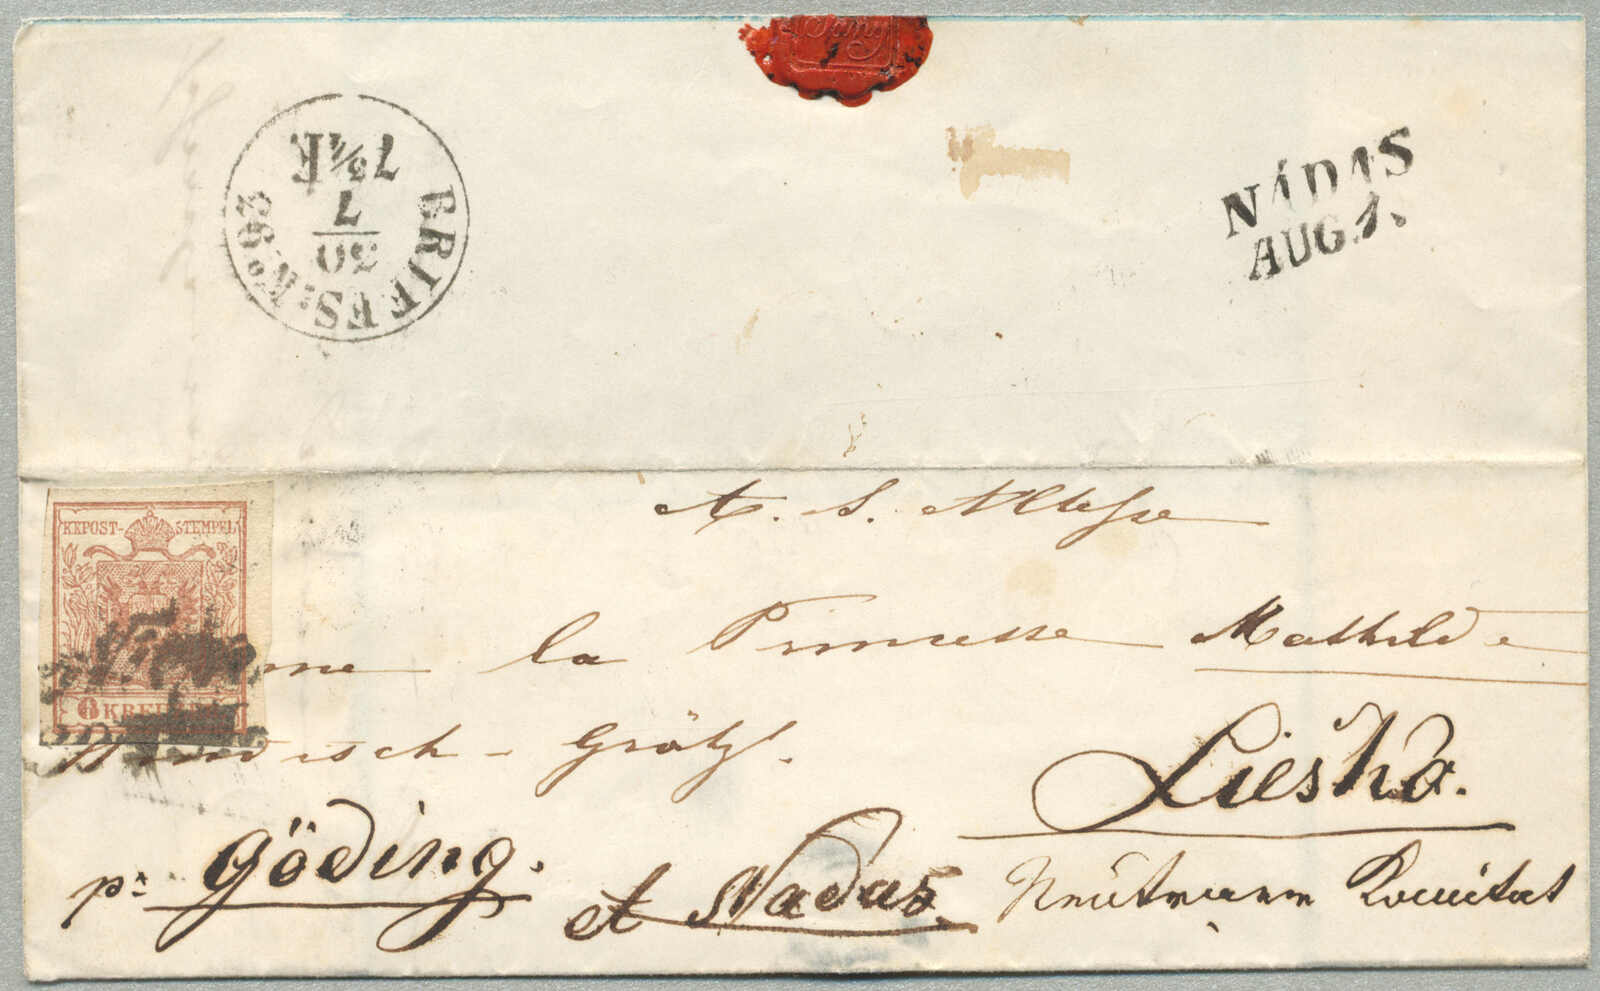 BRIEFS: No 26.
30
7
7 3/4 F.
NÁDAS
AUG. 1.
KKPOST-STEMPEL
6 KREUZER
A. S. Altesse
la Princesse Mathilde
Windisch-Grätz.
Lieskó.
pr Göding.
et Nadas.
Neutraer Komitat